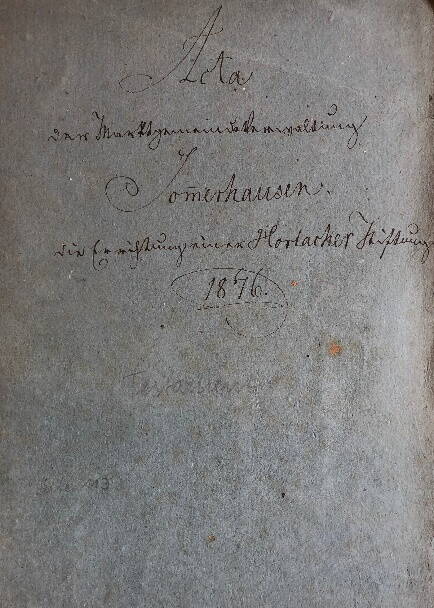 Acta
der Marktgemeindeverwaltung
Som̄erhausen.
die Errichtung einer Horlacher Stiftung
1876.
Testament